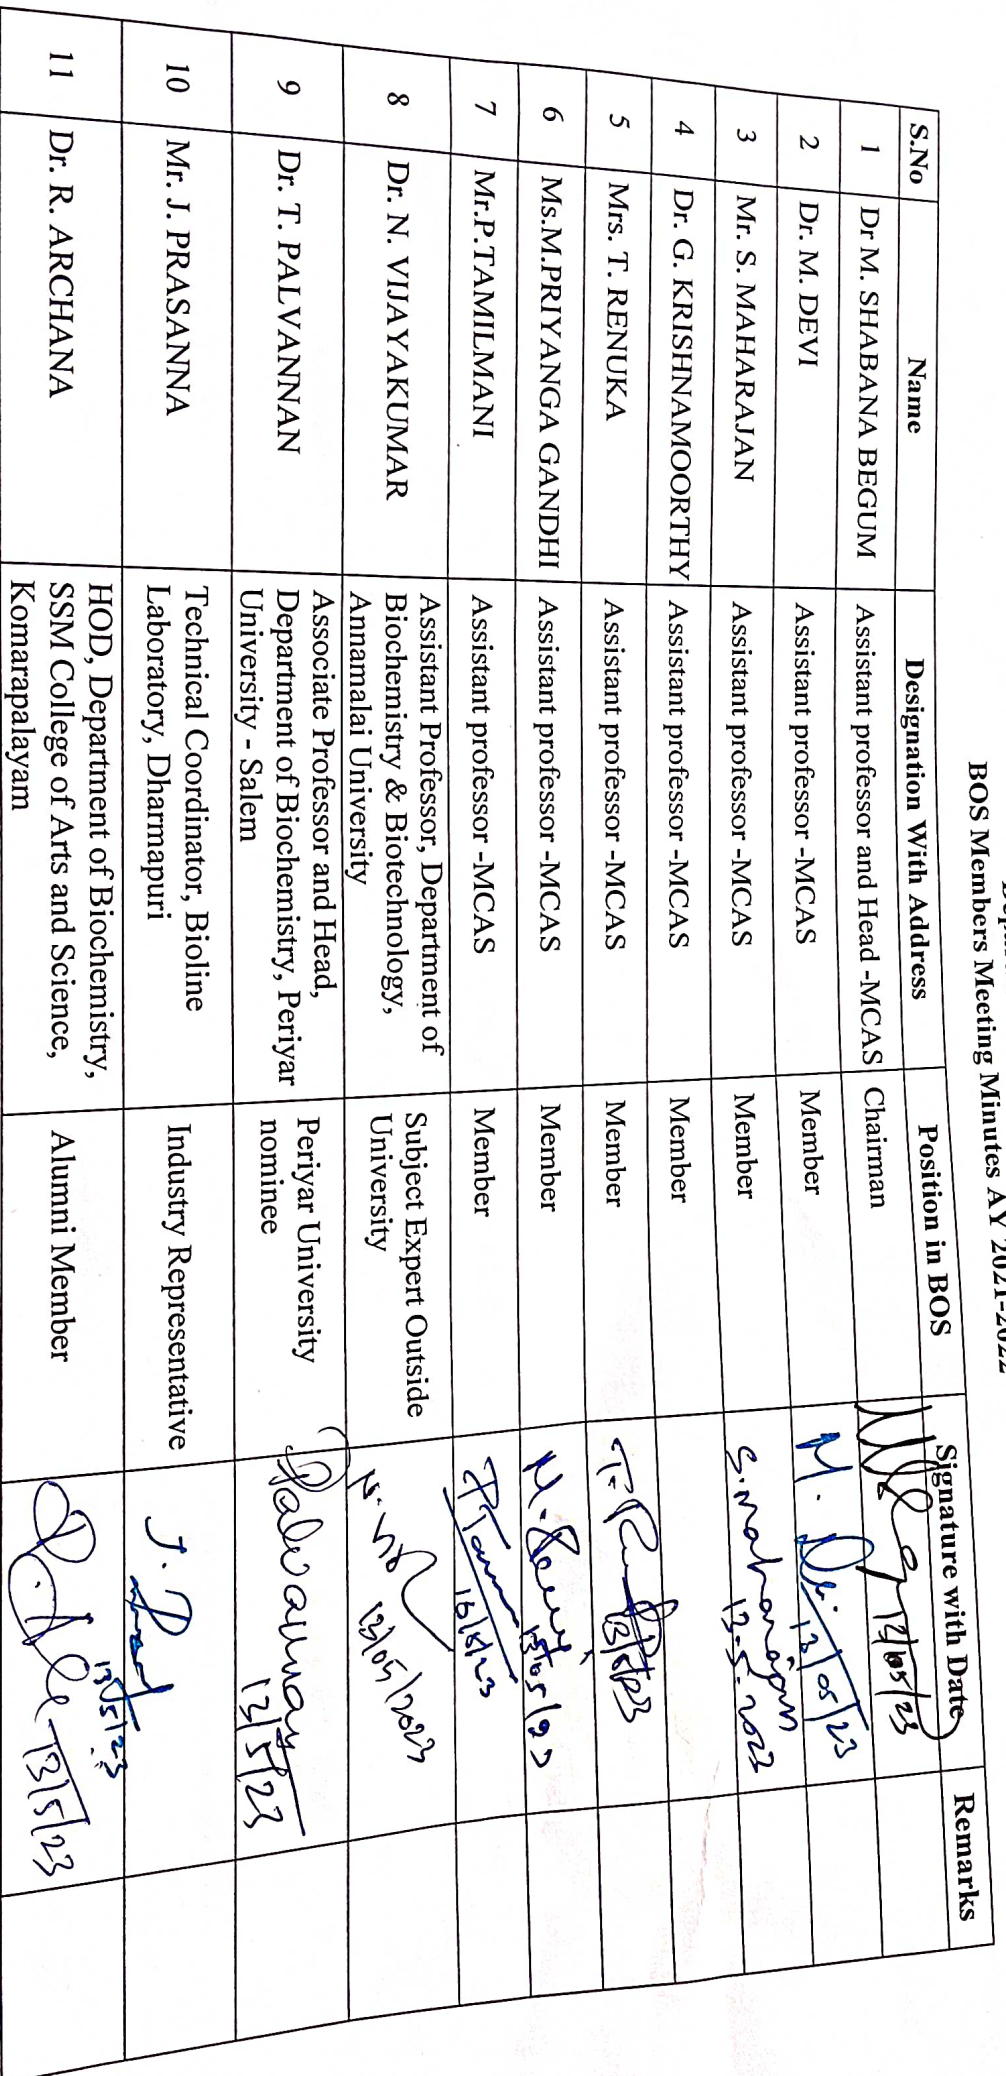 BOS Members Meeting Minutes AY 2021-2022
S.No Name Designation With Address Position in BOS Signature with Date Remarks
1 Dr M. SHABANA BEGUM Assistant professor and Head -MCAS Chairman 13/05/23
2 Dr. M. DEVI Assistant professor -MCAS Member M. Devi 13/05/23
3 Mr. S. MAHARAJAN Assistant professor -MCAS Member S. Maharajan 13-5-2023
4 Dr. G. KRISHNAMOORTHY Assistant professor -MCAS Member
5 Mrs. T. RENUKA Assistant professor -MCAS Member 13/5/23
6 Ms.M.PRIYANGA GANDHI Assistant professor -MCAS Member 13/05/23
7 Mr.P.TAMILMANI Assistant professor -MCAS Member
8 Dr. N. VIJAYAKUMAR Assistant Professor, Department of
Biochemistry & Biotechnology,
Annamalai University
Subject Expert Outside
University
13/05/2023
9 Dr. T. PALVANNAN Associate Professor and Head,
Department of Biochemistry, Periyar
University - Salem
Periyar University
nominee
13/5/23
10 Mr. J. PRASANNA Technical Coordinator, Bioline
Laboratory, Dharmapuri
Industry Representative
J. 13/5/23
11 Dr. R. ARCHANA HOD, Department of Biochemistry,
SSM College of Arts and Science,
Komarapalayam
Alumni Member
13/5/23